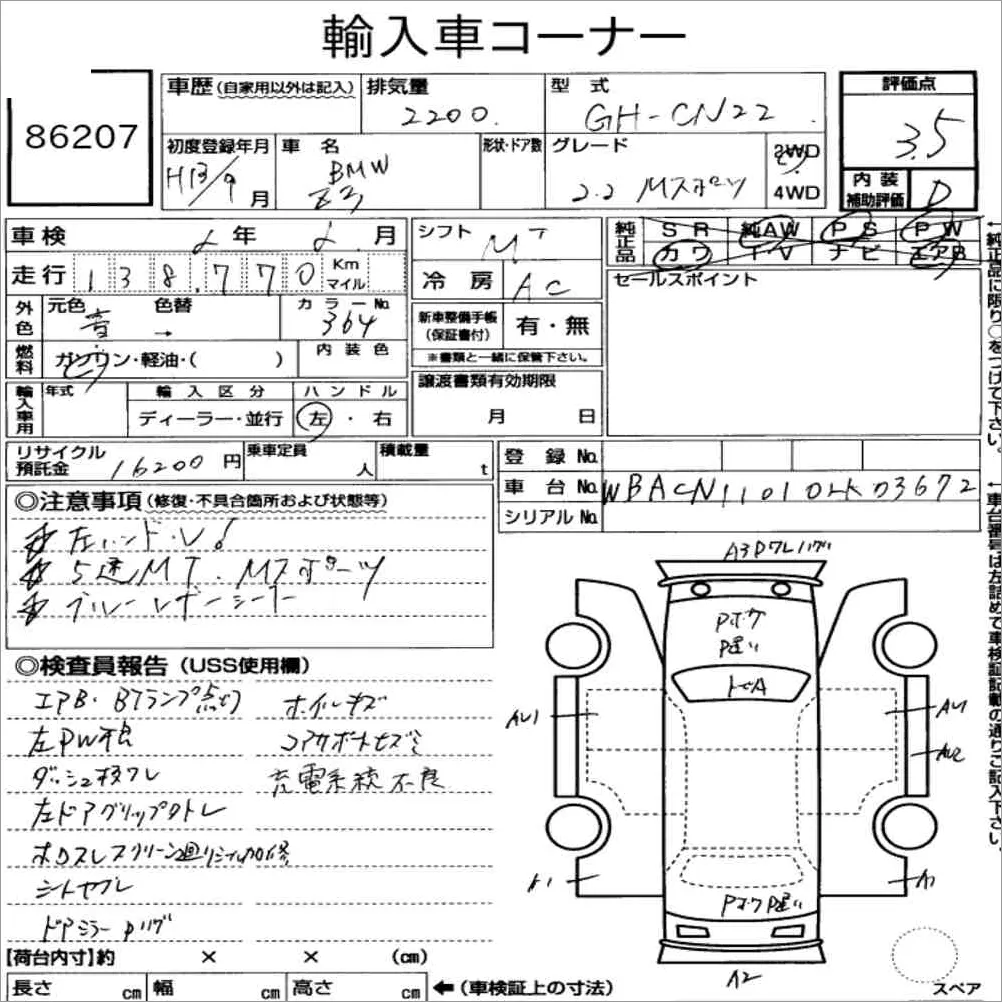 輸入車コーナー
86207
車歴 (自家用以外は記入) 排気量 型式 評価点
2200. GH-CN22 3.5
初度登録年月 車名 形状・ドア数 グレード 2WD
H13/9 月 BMW Z3 2.2 Mスポーツ 4WD
内装補助評価 D
車検 年 月
シフト MT
純正品 SR 純AW PS PW
カワ TV ナビ エアB
走行 138,770 Km マイル
冷房 AC
セールスポイント
外色 元色 色替 カラーNo
青 → 364
新車整備手帳 (保証書付) 有・無
※書類と一緒に保管下さい。
燃料 ガソリン・軽油・( ) 内装色
譲渡書類有効期限
月 日
輸入車用 年式 輸入区分 ハンドル
ディーラー・並行 左・右
←純正品に限り○をつけて下さい。
リサイクル預託金 16200円 乗車定員 人 積載量 t
登録No.
車台No. WBACN11010LK03672
シリアルNo.
←車台番号は左詰めで車検証記載の通りご記入下さい。
◎注意事項 (修復・不具合箇所および状態等)
左ハンドル!
5速MT. Mスポーツ
ブルーレザーシート
◎検査員報告 (USS使用欄)
エアB・Bランプ点灯 ホイルキズ
左PW不良 コアサポートキズ
ダッシュ板ワレ 充電系統不良
左ドアグリップクトレ
ホロスレスクリーン廻り
シートヤブレ
ドアミラー
A3Pワレ
Pボケ
トビA
AU1
AU1
AU2
A1
A1
A2
スペア
【荷台内寸】約 × × (cm)
長さ cm 幅 cm 高さ cm ←(車検証上の寸法)